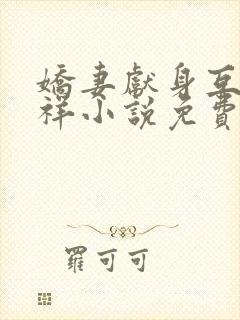 嬌妻獻身互
祥小說免費
羅可可